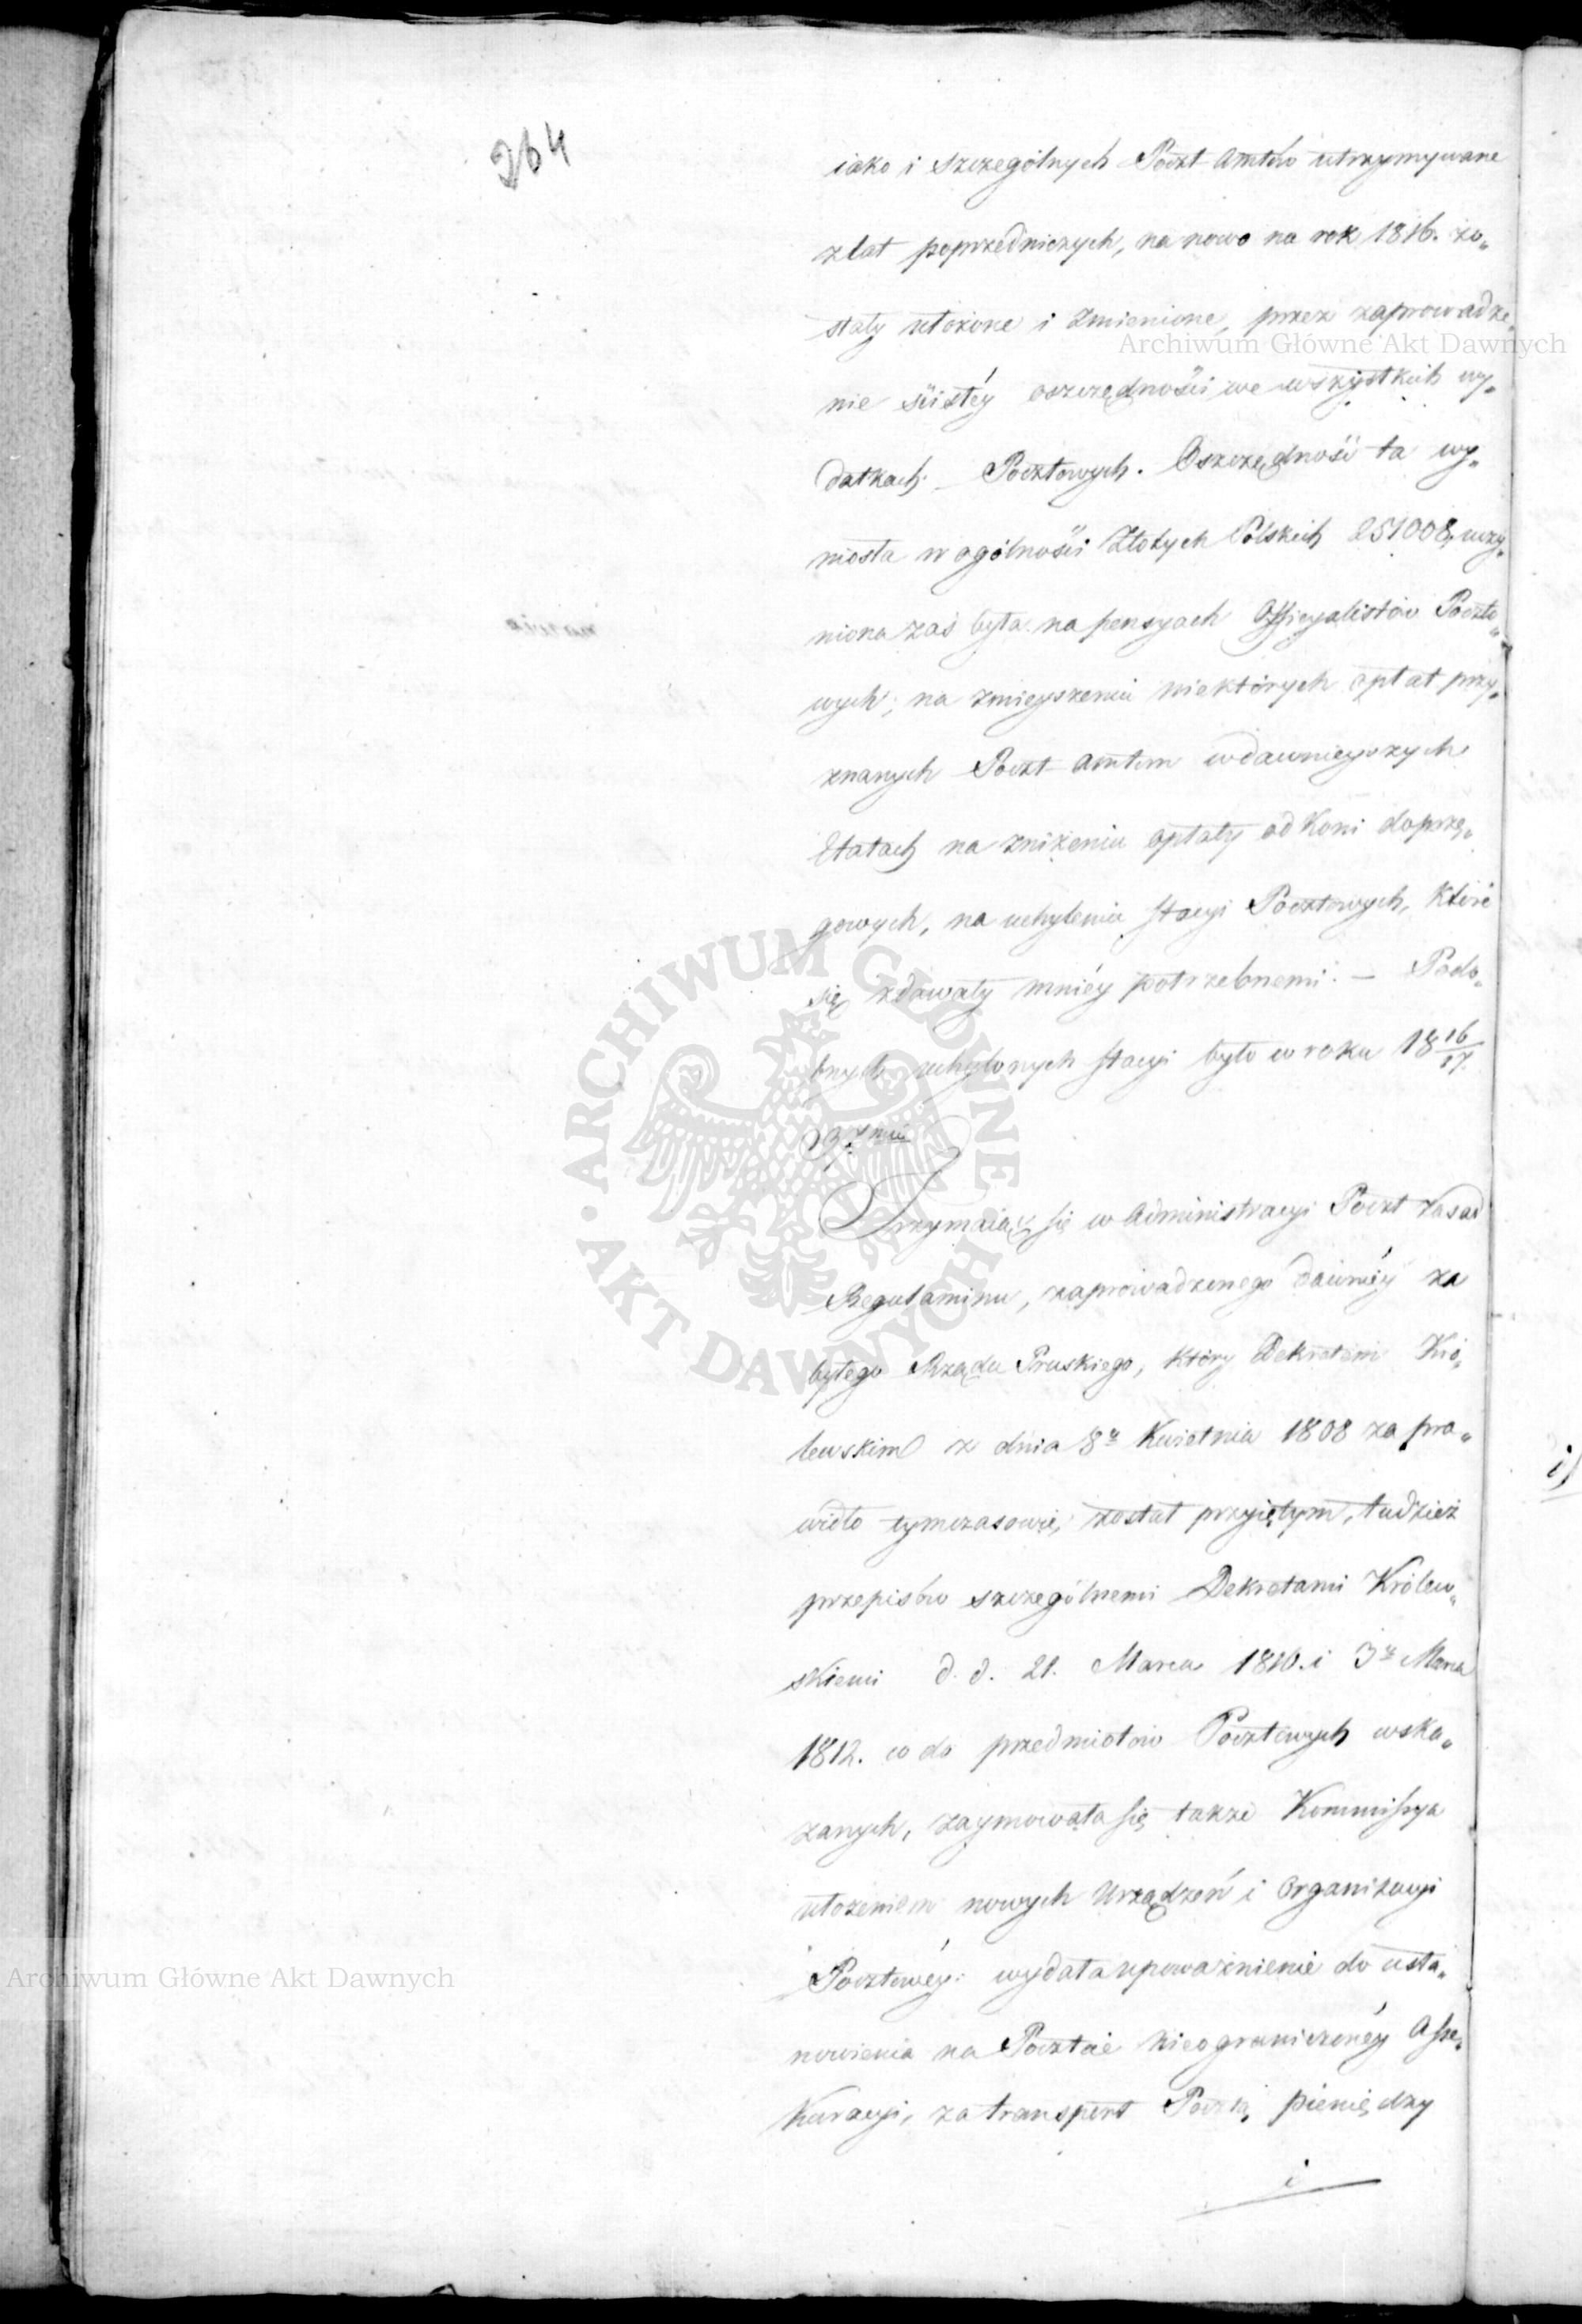 264
iako i szczególnych Poczt-Amtów utrzymywane
z lat poprzedniczych, na nowo na rok 1816. zo„
stały ułożone i zmienione, przez zaprowadze„
Archiwum Główne Akt Dawnych
nie ściśléy oszczędności we wszystkich wy„
datkach Pocztowych. Oszczędność ta wy„
niosła w ogólności Złotych Polskich 251008, uczy„
niona zaś była na pensyach Officyalistów Poczto„
wych; na zmieyszeniu niektórych opłat przy„
znanych Poczt-Amtom w dawnieyszych
Etatach na zniżeniu opłaty od Koni doprzę„
gowych, na uchyleniu stacyi Pocztowych, które
się zdawały mniéy potrzebnemi. — Podo„
bnych uchylonych stacyi było w roku 18 16/17.
ARCHIWUM GŁÓWNE AKT DAWNYCH
Trzymaiąc się w Administracyi Poczt Zasad
Regulaminu, zaprowadzonego dawniéy za
byłego Rządu Pruskiego, który Dekretem Kró„
lewskim z dnia 8º Kwietnia 1808 za pra„
widło tymczasowie, został przyiętym, tudzież
przepisów szczególnemi Dekretami Królew„
skiemi d. d. 21. Marca 1810. i 3º Marca
1812. co do przedmiotów Pocztowych wska„
zanych, zaymowała się także Kommissya
ułożeniem nowych Urządzeń i Organizacyi
Pocztowéy: wydała upoważnienie do usta„
Archiwum Główne Akt Dawnych
nowienia na Poczcie nieograniczonéy Asse„
kuracyi, za transport Pocztą pieniędzy
i